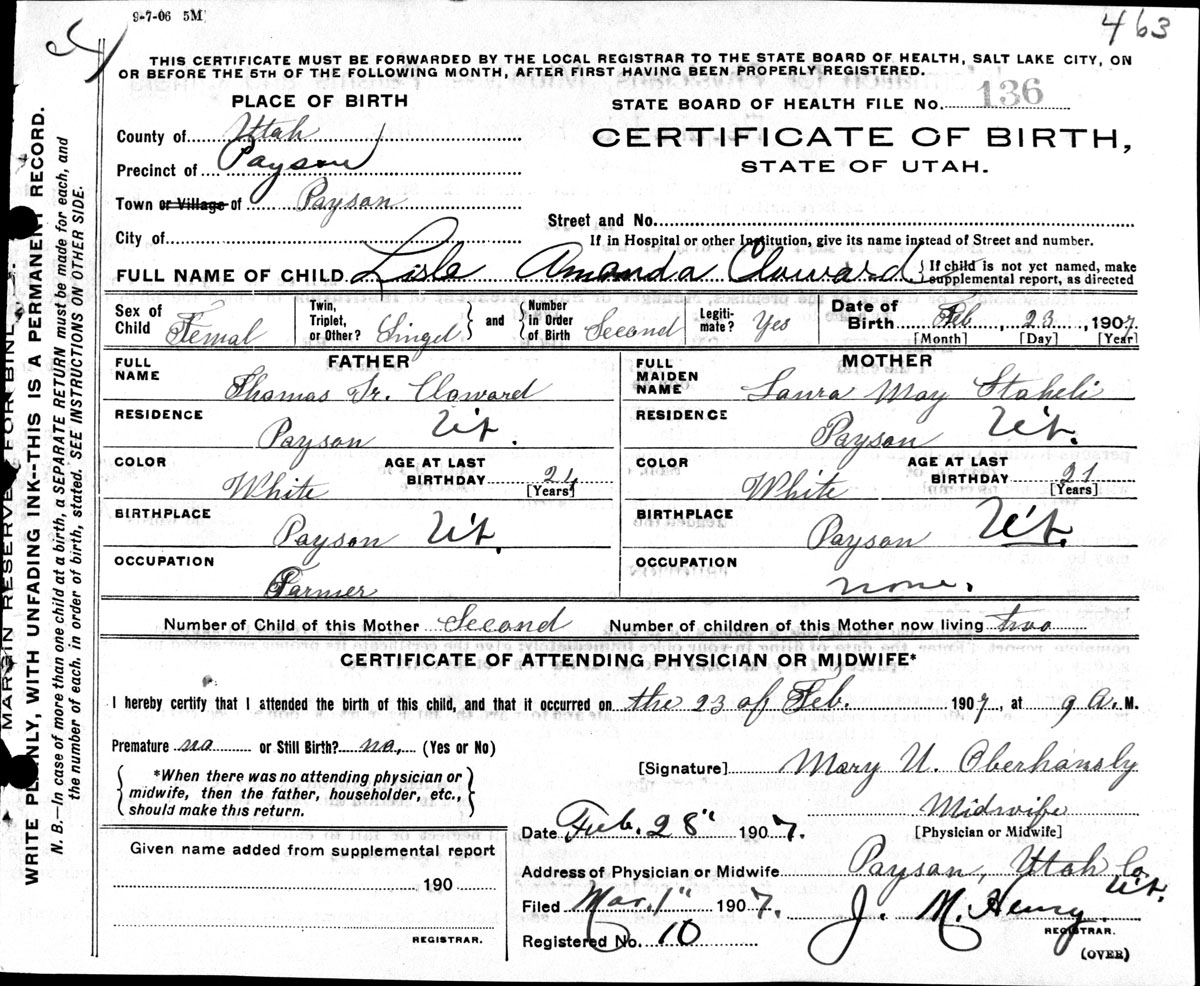 9-7-06 5M
463
THIS CERTIFICATE MUST BE FORWARDED BY THE LOCAL REGISTRAR TO THE STATE BOARD OF HEALTH, SALT LAKE CITY, ON
OR BEFORE THE 5TH OF THE FOLLOWING MONTH, AFTER FIRST HAVING BEEN PROPERLY REGISTERED.
PLACE OF BIRTH
STATE BOARD OF HEALTH FILE No. 136
County of Utah
CERTIFICATE OF BIRTH,
Precinct of Payson
STATE OF UTAH.
Town or Village of Payson
Street and No.
City of
If in Hospital or other Institution, give its name instead of Street and number.
FULL NAME OF CHILD Lisle Amanda Cloward { If child is not yet named, make
supplemental report, as directed
Sex of Child Femal Twin, Triplet, or Other? Singel } and { Number in Order of Birth Second Legiti-mate? Yes Date of Birth Feb, 23, 1907
[Month] [Day] [Year]
FATHER
FULL NAME Thomas Jr. Cloward
RESIDENCE Payson Ut.
COLOR White AGE AT LAST BIRTHDAY 24 [Years]
BIRTHPLACE Payson Ut.
OCCUPATION Farmer
MOTHER
FULL MAIDEN NAME Laura May Staheli
RESIDENCE Payson Ut.
COLOR White AGE AT LAST BIRTHDAY 21 [Years]
BIRTHPLACE Payson Ut.
OCCUPATION none.
Number of Child of this Mother Second Number of children of this Mother now living two
CERTIFICATE OF ATTENDING PHYSICIAN OR MIDWIFE*
I hereby certify that I attended the birth of this child, and that it occurred on the 23 of Feb. 1907, at 9 A. M.
Premature no or Still Birth? no, (Yes or No)
*When there was no attending physician or
midwife, then the father, householder, etc.,
should make this return.
[Signature] Mary U. Oberhansly
Midwife
[Physician or Midwife]
Date Feb. 28" 1907.
Given name added from supplemental report
190
REGISTRAR.
Address of Physician or Midwife Payson, Utah Co. Ut.
Filed Mar. 1" 1907. J. M. Henry.
REGISTRAR.
Registered No. 10
(OVER)
MARGIN RESERVED FOR BIND
WRITE PLAINLY, WITH UNFADING INK--THIS IS A PERMANENT RECORD.
N. B.—In case of more than one child at a birth, a SEPARATE RETURN must be made for each, and
the number of each, in order of birth, stated. SEE INSTRUCTIONS ON OTHER SIDE.